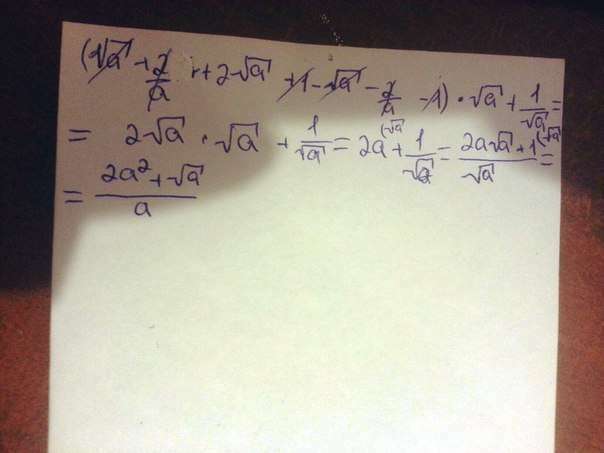 (√a + 2/a + 2√a + 1 - √a - 2/a - 1) · √a + 1/√a =
= 2√a · √a + 1/√a = 2a (√a + 1/√a = 2a√a + 1 (√a / √a =
= 2a² + √a / a